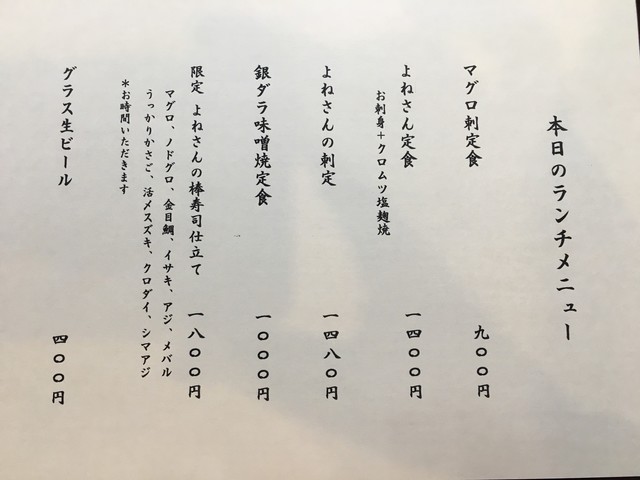 本日のランチメニュー
マグロ刺定食 九〇〇円
よねさん定食 一四〇〇円
お刺身＋クロムツ塩麹焼
よねさんの刺定 一四八〇円
銀ダラ味噌焼定食 一〇〇〇円
限定 よねさんの棒寿司仕立て 一八〇〇円
マグロ、ノドグロ、金目鯛、イサキ、アジ、メバル
うっかりかさご、活メスズキ、クロダイ、シマアジ
＊お時間いただきます
グラス生ビール 四〇〇円